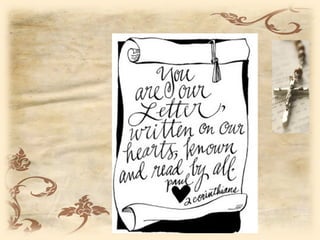 You
are our
Letter,
written on our
hearts, known
and read by all.
paul
2 corinthians